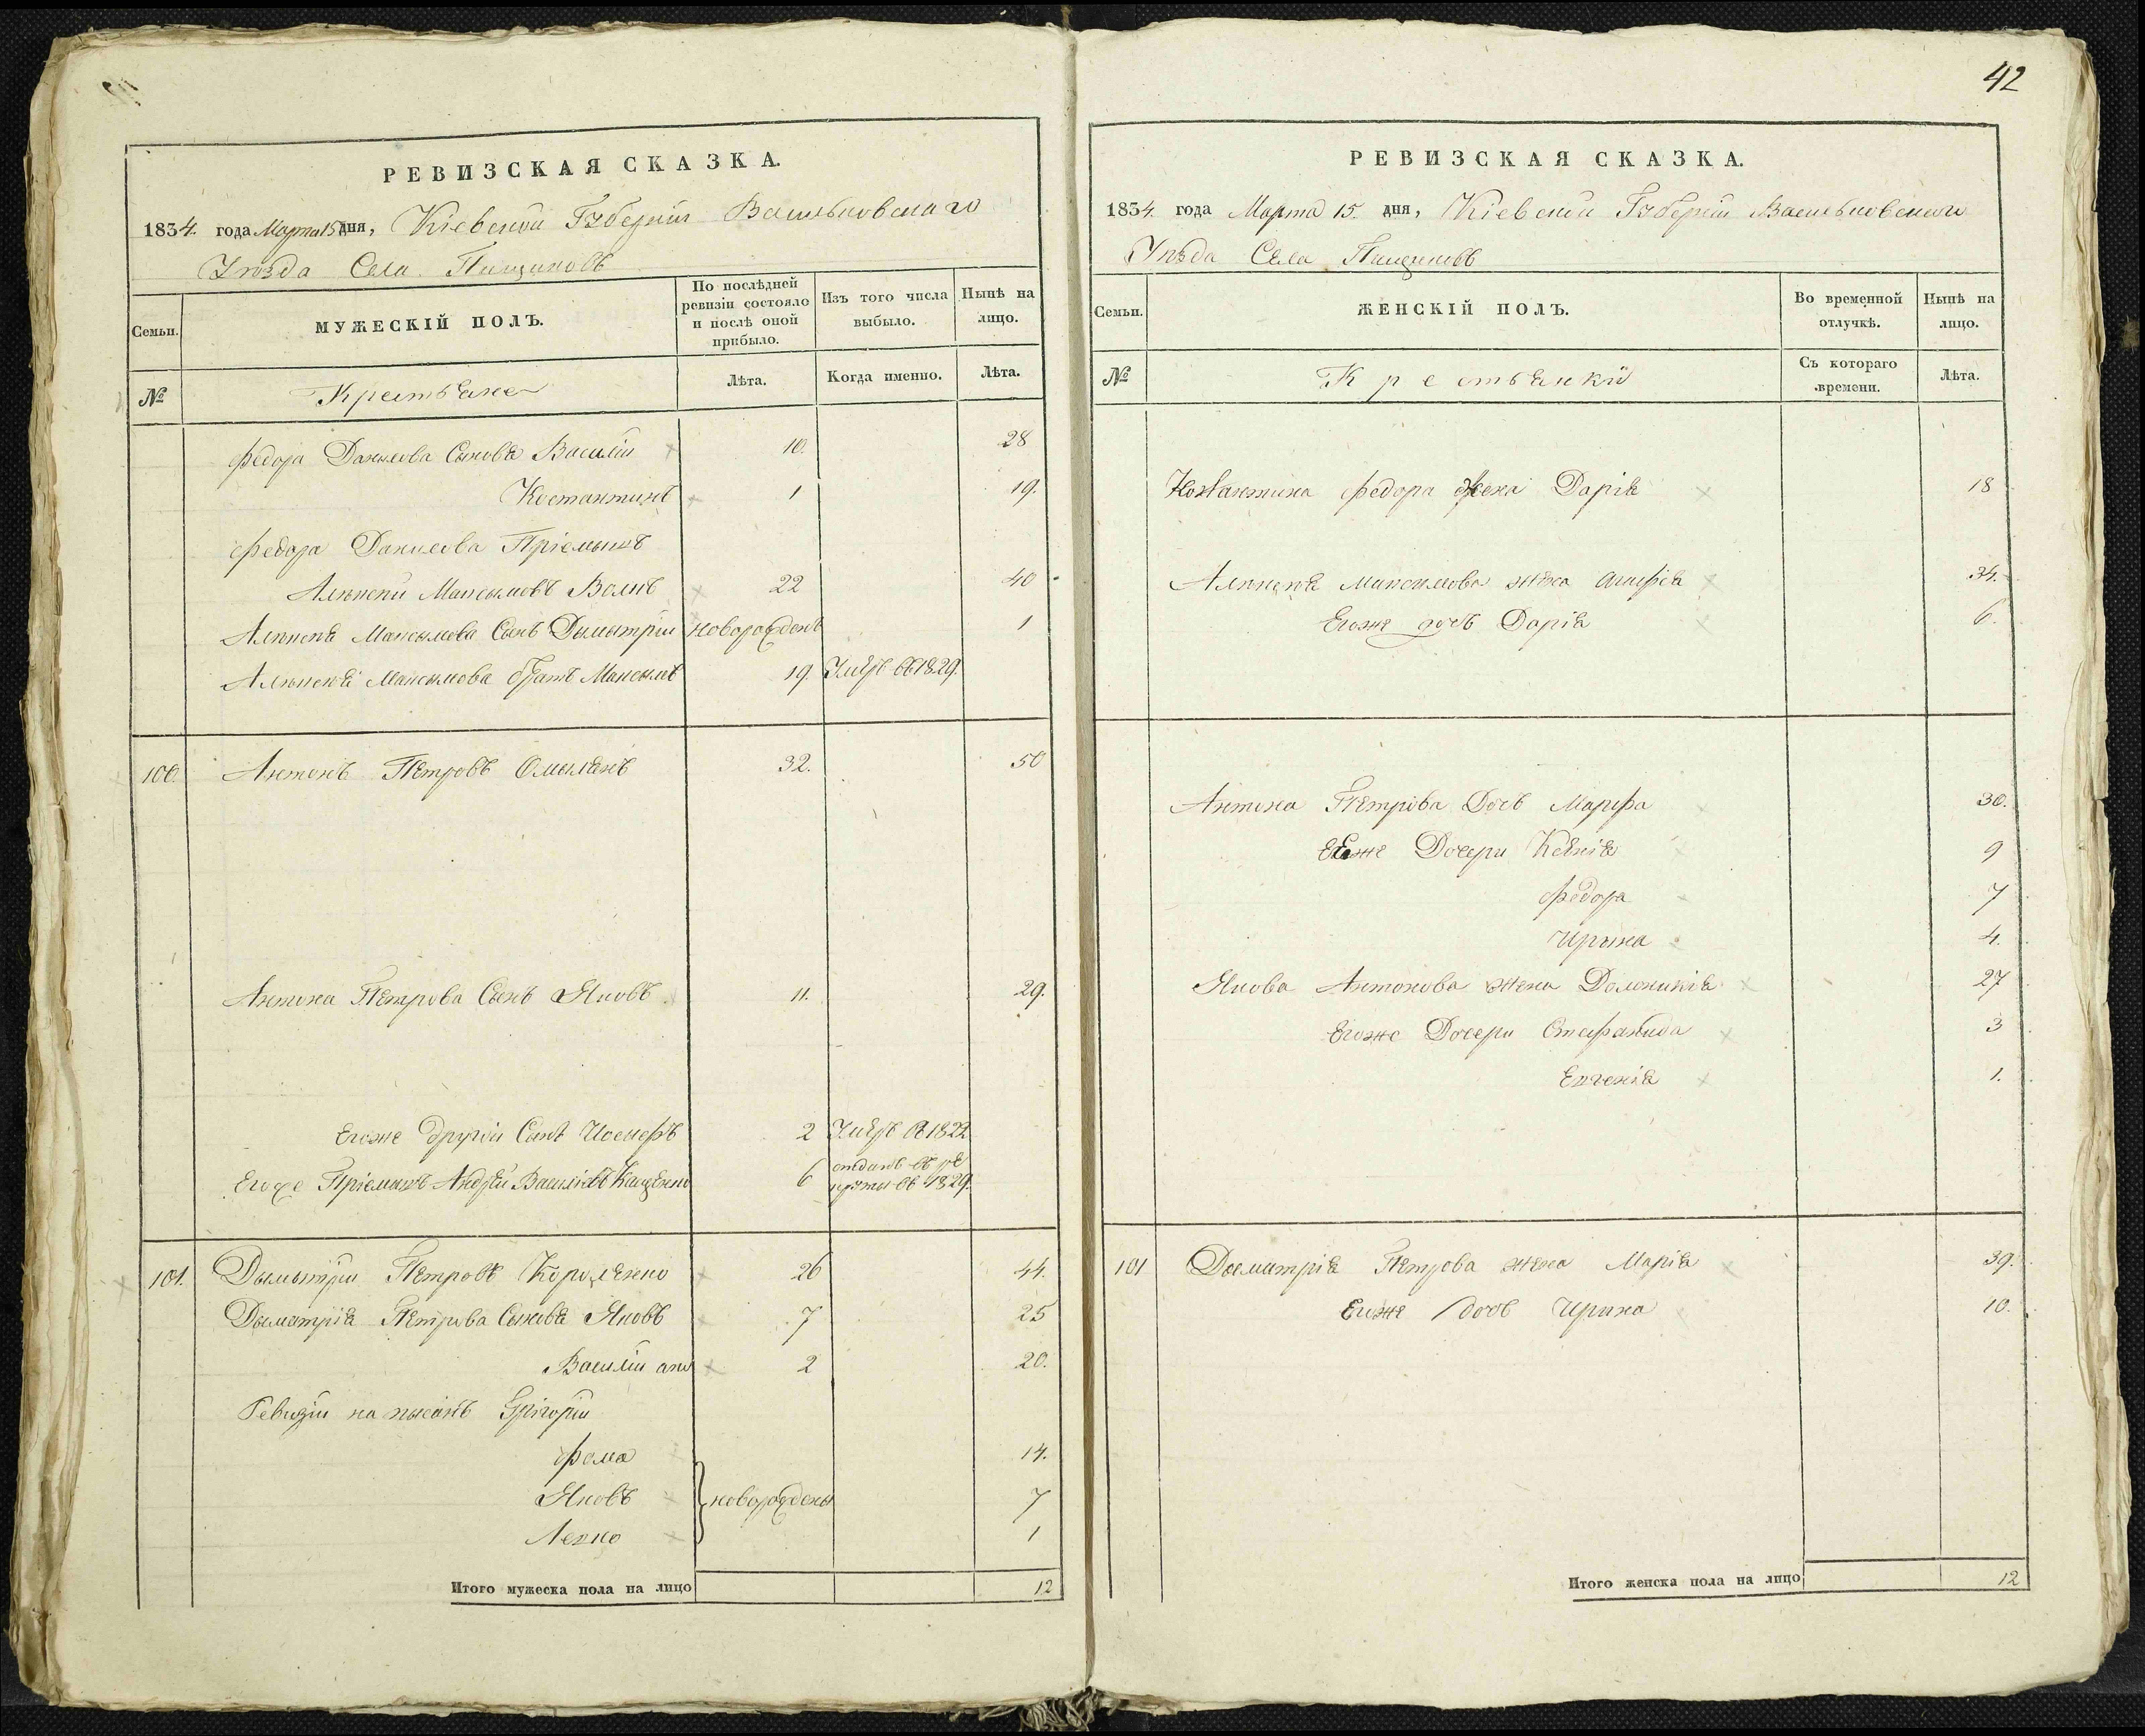 42
РЕВИЗСКАЯ СКАЗКА.
1834. года Марта 15 дня, Кіевской Губерніи Васильковскаго
Уѣзда Села Пищиковъ
Семьи.
МУЖЕСКІЙ ПОЛЪ.
По послѣдней ревизіи состояло и послѣ оной прибыло.
Изъ того числа выбыло.
Нынѣ на лицо.
№
Крестьяне
Лѣта.
Когда именно.
Лѣта.
Федора Данилова Сыновя Василій 10. 28
Костантинъ 1 19.
Федора Данилова Пріемышъ
Алексѣй Максымовъ 22 40
Максымова Сынъ Дымытрій новорожденъ 1
Максымова братъ Максымъ 19 Умеръ въ 1829.
100. Антонъ Петровъ 32. 50
Антона Петрова Сынъ Яковъ 11. 29.
Егоже другій Сынъ Иосифъ 2 Умеръ въ 1822
Егоже Пріемышъ Андрей Василіевъ Кащенко 6 отданъ въ рекруты въ 1829.
101. Дымытрій Петровъ 26 44.
Дымитрія Петрова Сыновя Яковъ 7 25
Василій 2 20.
Ревизіи написанъ Григорій
Фома 14.
Яковъ новорождены 7
1
Итого мужеска пола на лицо 12
РЕВИЗСКАЯ СКАЗКА.
1834. года Марта 15. дня, Кіевской Губерніи Васильковскаго
Уѣзда Села Пищиковъ
Семьи.
ЖЕНСКІЙ ПОЛЪ.
Во временной отлучкѣ.
Нынѣ на лицо.
№
Крестьянкы
Съ котораго времени.
Лѣта.
Костантина Федора жена Дарія 18
Максимова жена Агафія 34.
Егоже дочь Дарія 6.
Антона Петрова Дочь Марфа 30.
Егоже Дочери Ксенія 9
Федора 7
Ирына 4.
Якова Антонова жена Доминикія 27
Егоже Дочери Стефанида 3
Евгенія 1.
101 Дымитрія Петрова жена Марія 39.
Егоже дочь Ирина 10.
Итого женска пола на лицо 12